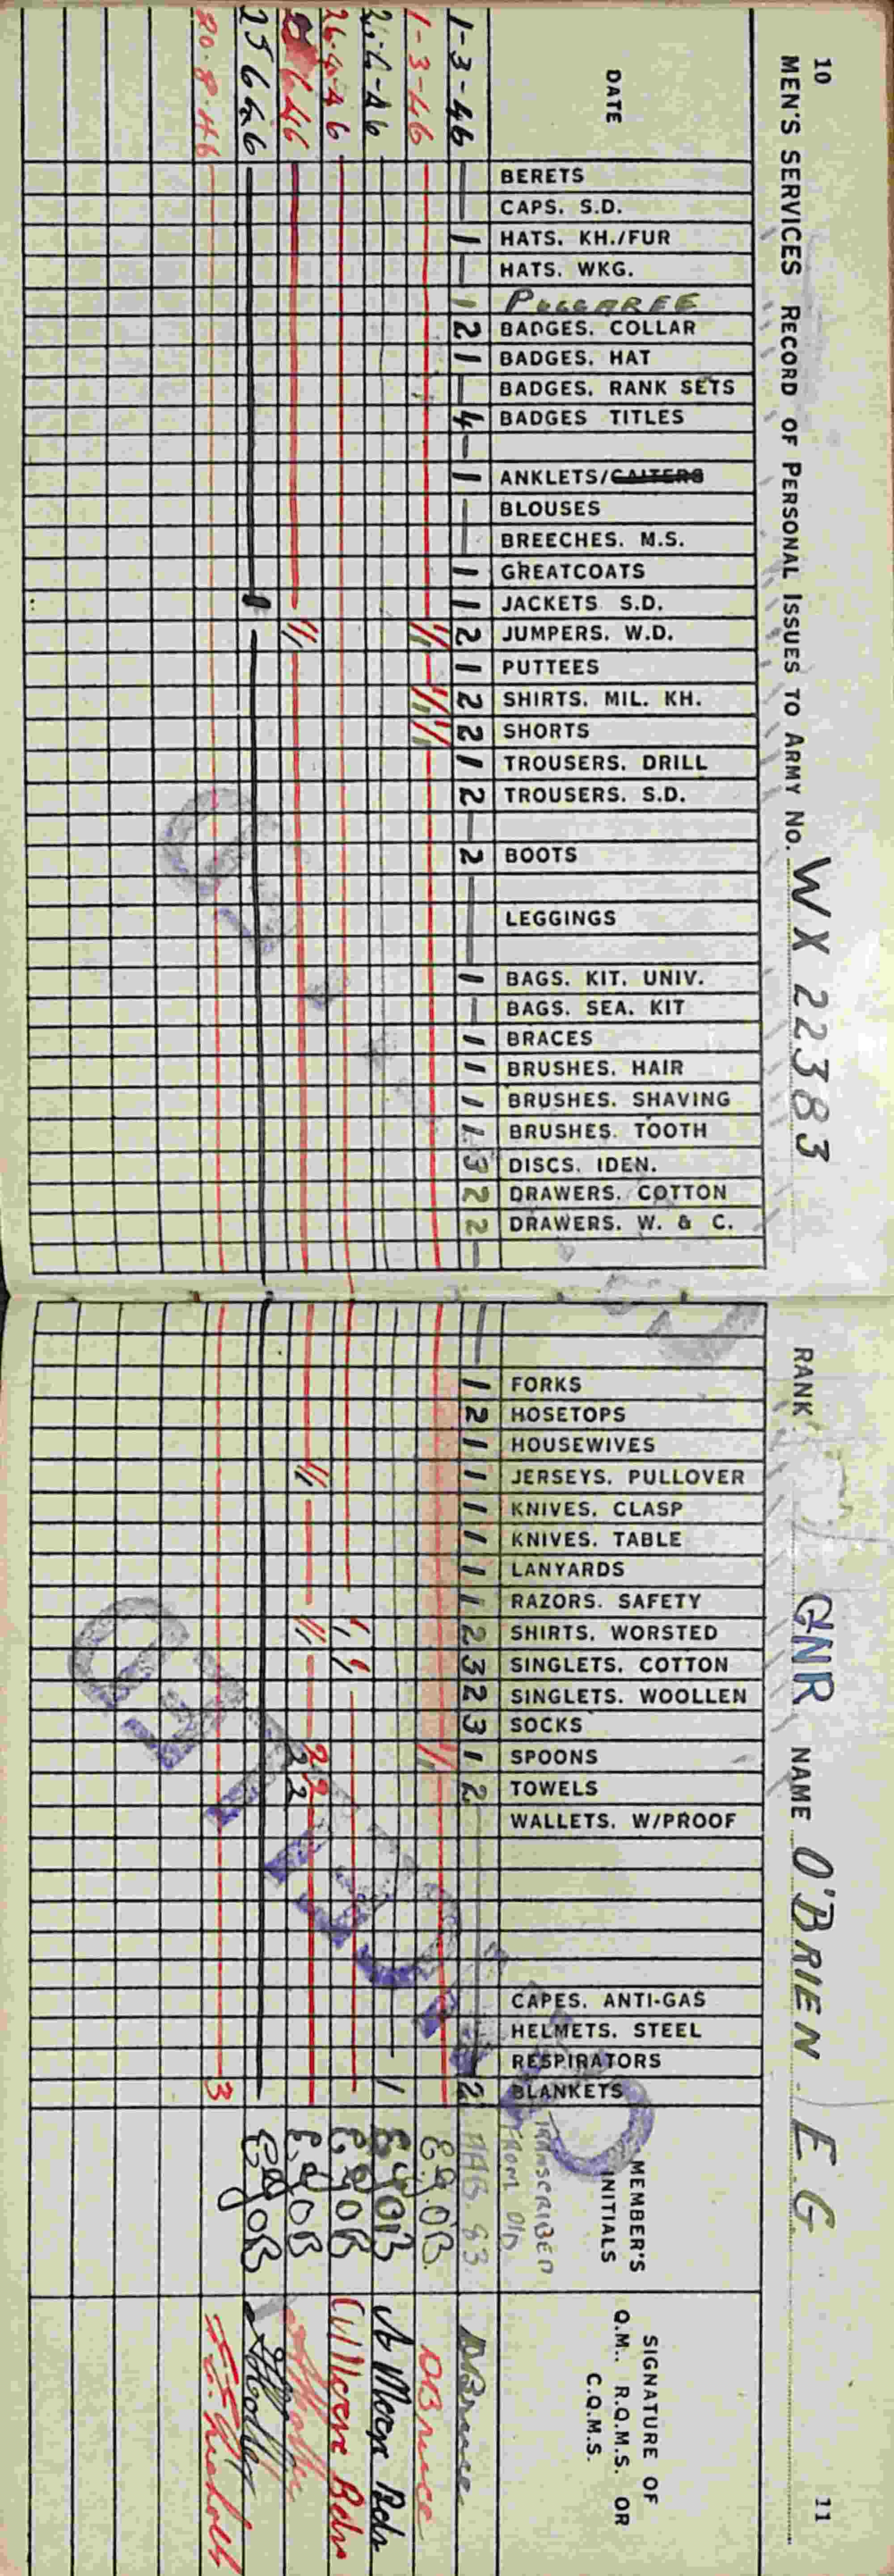 10
MEN'S SERVICES RECORD OF PERSONAL ISSUES TO ARMY NO. WX 22383
RANK GNR NAME O'BRIEN E G
11
DATE
BERETS
CAPS. S.D.
HATS. KH./FUR
HATS. WKG.
PUGGAREE
BADGES. COLLAR
BADGES. HAT
BADGES. RANK SETS
BADGES TITLES
ANKLETS/GAITERS
BLOUSES
BREECHES. M.S.
GREATCOATS
JACKETS S.D.
JUMPERS. W.D.
PUTTEES
SHIRTS. MIL. KH.
SHORTS
TROUSERS. DRILL
TROUSERS. S.D.
BOOTS
LEGGINGS
BAGS. KIT. UNIV.
BAGS. SEA. KIT
BRACES
BRUSHES. HAIR
BRUSHES. SHAVING
BRUSHES. TOOTH
DISCS. IDEN.
DRAWERS. COTTON
DRAWERS. W. & C.
FORKS
HOSETOPS
HOUSEWIVES
JERSEYS. PULLOVER
KNIVES. CLASP
KNIVES. TABLE
LANYARDS
RAZORS. SAFETY
SHIRTS. WORSTED
SINGLETS. COTTON
SINGLETS. WOOLLEN
SOCKS
SPOONS
TOWELS
WALLETS. W/PROOF
CAPES. ANTI-GAS
HELMETS. STEEL
RESPIRATORS
BLANKETS
MEMBER'S INITIALS
SIGNATURE OF
Q.M.. R.Q.M.S. OR
C.Q.M.S.
TRANSCRIBED
FROM OLD
1-3-46 — — 1 — 1 2 1 — 4 — 1 — — 1 1 2 1 2 2 1 2 — 2 — 1 — 1 1 1 1 3 2 2 — — 1 2 1 1 1 1 1 1 2 3 2 3 1 2 2 AAB 83 DBruce
1-3-46 E.G.O'B. DBruce
26-4-46 1 EGOB Moore
26-4-46 EGOB Moore
6 46 2 2 EGOB
25 6 46 1 EGOB
20.8.46 3